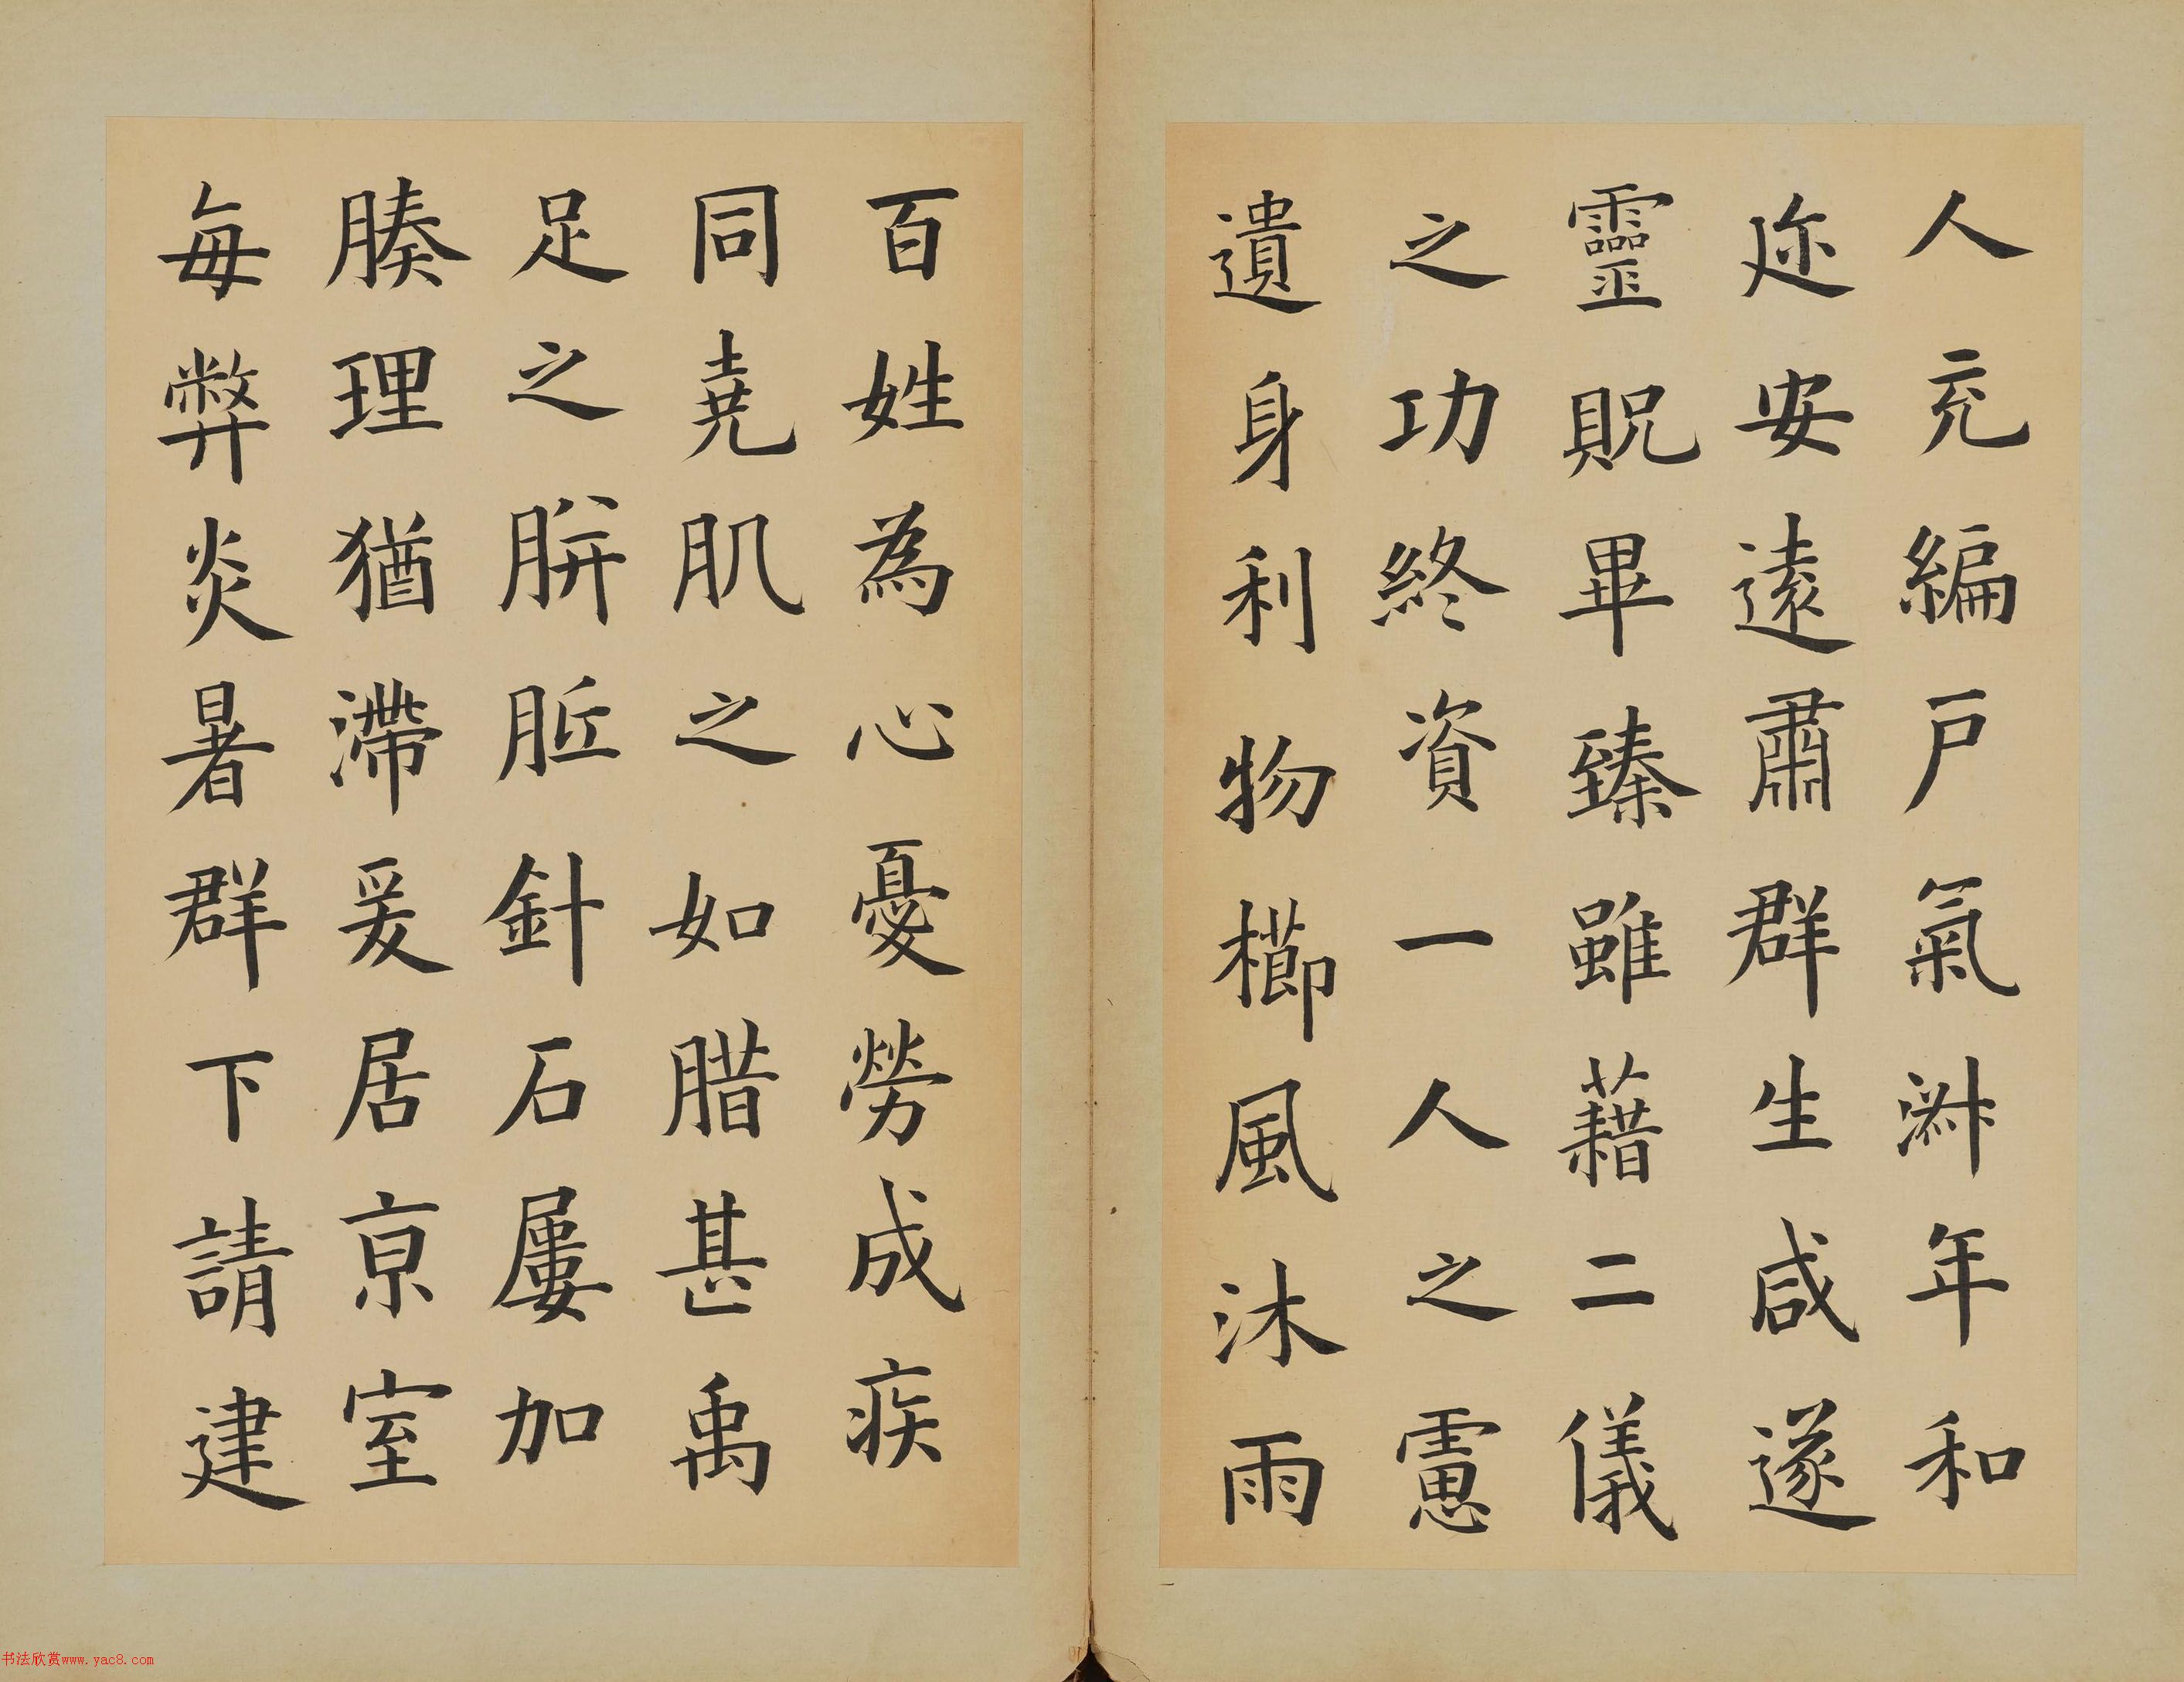 人充編戶氣淋年和
迩安遠肅群生咸遂
靈貺畢臻雖藉二儀
之功終資一人之慮
遺身利物櫛風沐雨
百姓為心憂勞成疾
同堯肌之如腊甚禹
足之胼胝針石屢加
腠理猶滯爰居京室
每弊炎暑群下請建
书法欣赏www.yac8.com